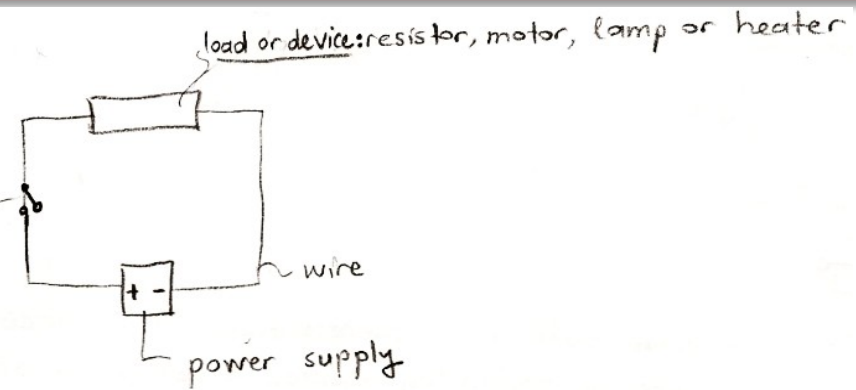 load or device: resistor, motor, lamp or heater
wire
+ -
power supply